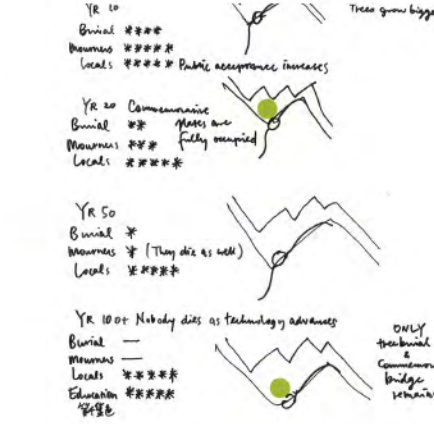 YR 10
Trees grow bigge
Burial ****
Mourners *****
Locals ***** Public acceptance increases
YR 20 Commemorative
Burial ** plates are
Mourners *** fully occupied
Locals *****
YR 50
Burial *
Mourners * (They die as well)
Locals *****
YR 100+ Nobody dies as technology advances
Burial —
Mourners —
Locals *****
Education *****
ONLY
tree burial
&
Commemor
bridge
remain